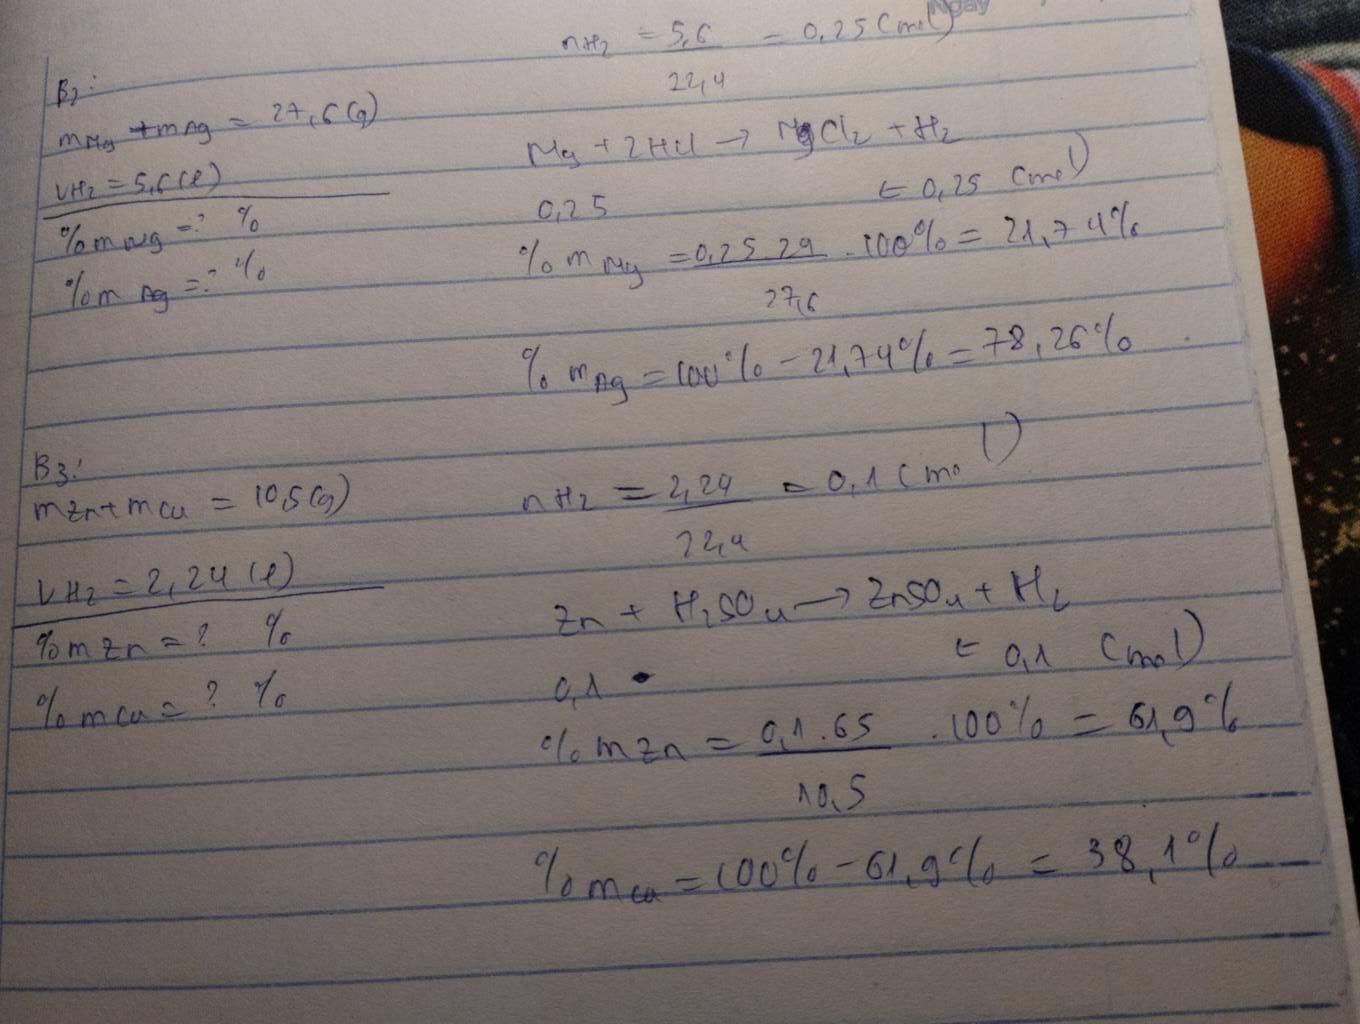 Ngày
nH2 = 5,6 / 22,4 = 0,25 (mol)
B2:
mMg + mAg = 27,6 (g)
VH2 = 5,6 (l)
%mMg = ? %
%mAg = ? %
Mg + 2HCl → MgCl2 + H2
0,25 ← 0,25 (mol)
%mMg = 0,25.24 / 27,6 . 100% = 21,74%
%mAg = 100% - 21,74% = 78,26%
B3:
mZn + mCu = 10,5 (g)
VH2 = 2,24 (l)
%mZn = ? %
%mCu = ? %
nH2 = 2,24 / 22,4 = 0,1 (mol)
Zn + H2SO4 → ZnSO4 + H2
0,1 ← 0,1 (mol)
%mZn = 0,1.65 / 10,5 . 100% = 61,9%
%mCu = 100% - 61,9% = 38,1%